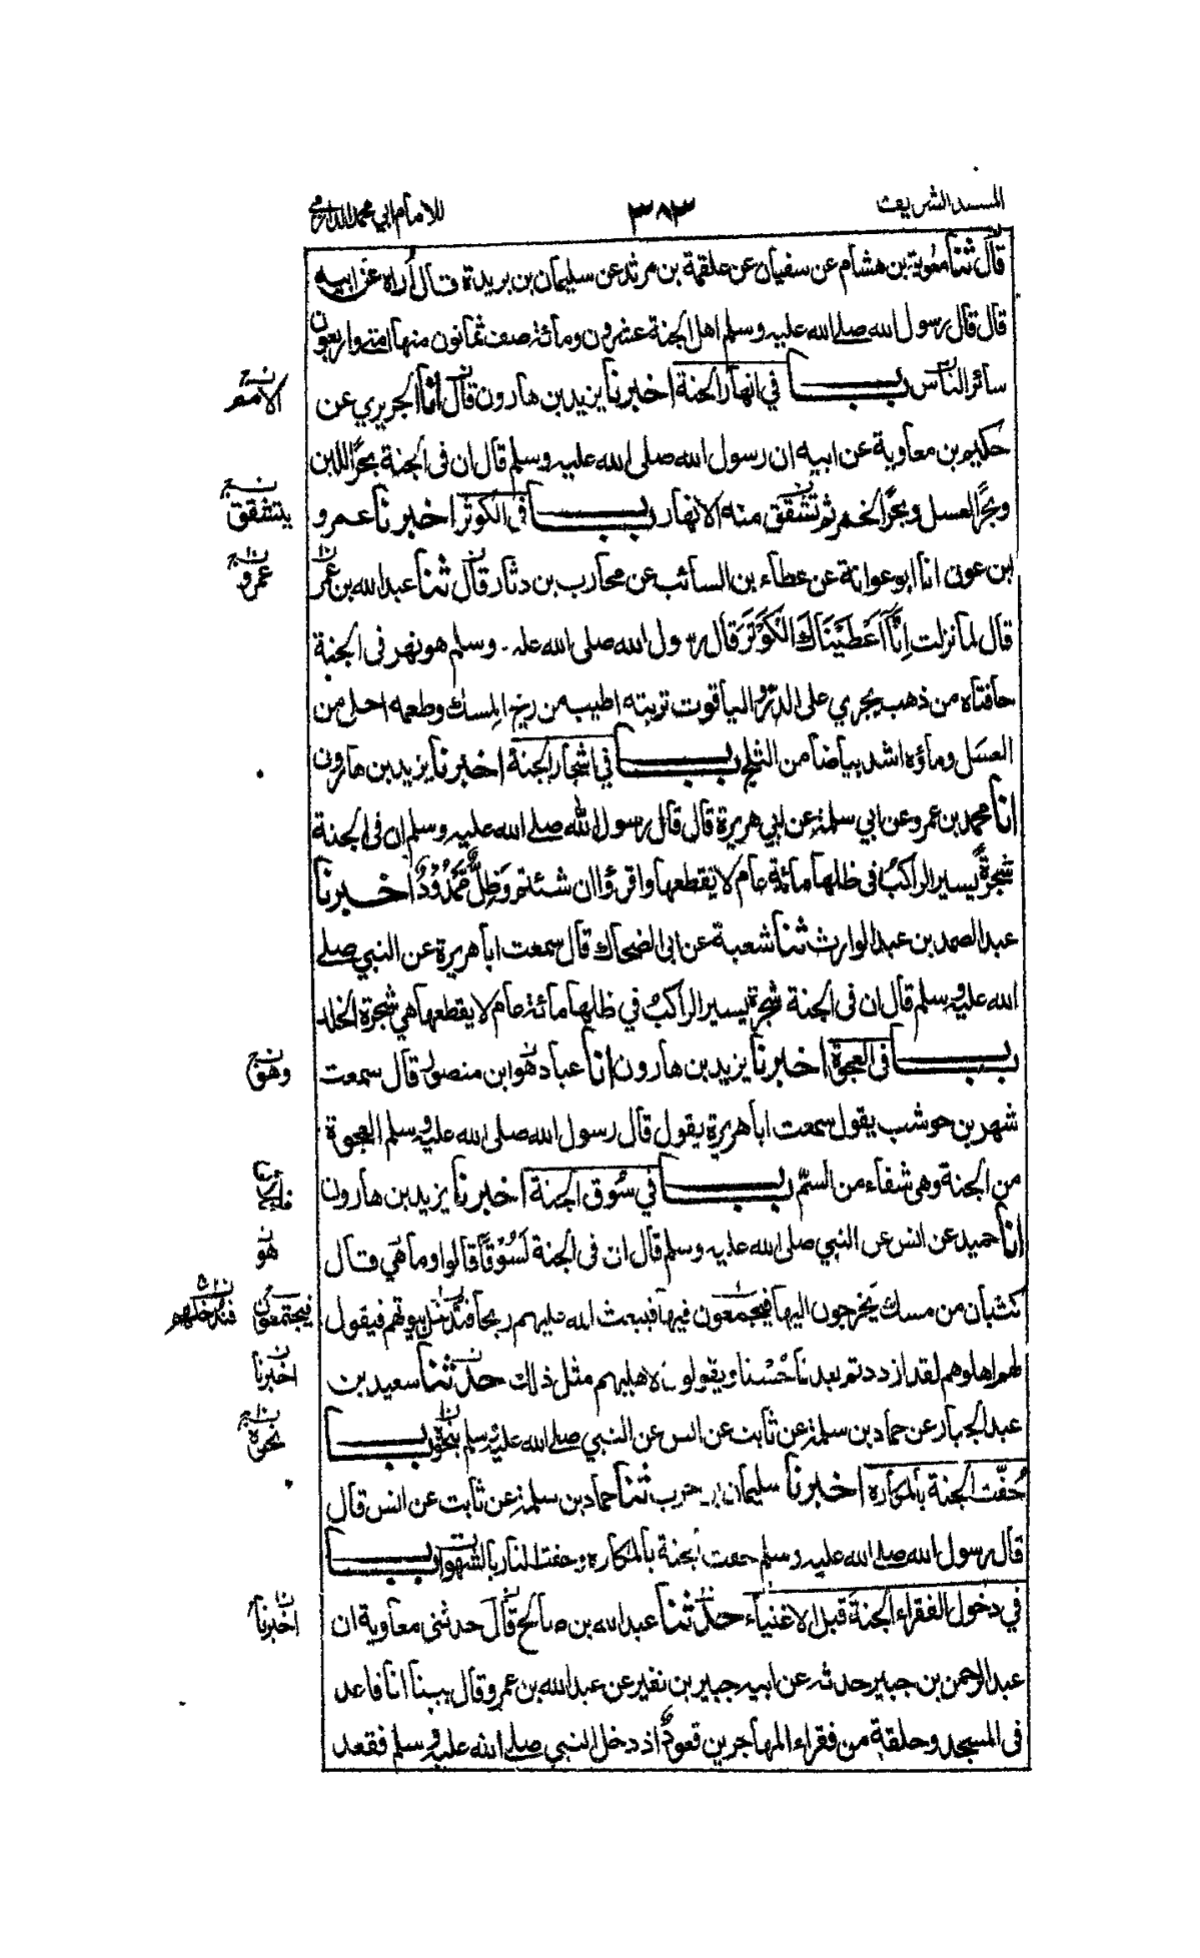 المسند الشريف ٣٨٣ للامام ابي محمد الدارمي
قال ثنا معوية بن هشام عن سفيان عن علقمة بن مرثد عن سليمان بن بريدة قال اراه عن ابيه
قال قال رسول الله صلى الله عليه وسلم اهل الجنة عشرون ومائة صف ثمانون منها امتي واربعون
سائر الناس باب في انهار الجنة اخبرنا يزيد بن هارون قال انا الجريري عن
الامم
حكيم بن معاوية عن ابيه ان رسول الله صلى الله عليه وسلم قال ان فى الجنة بحر اللبن
وبحر العسل وبحر الخمر ثم تشقق منه الانهار باب فى الكوثر اخبرنا عمرو
يتشقق
ابن عون انا ابو عوانة عن عطاء بن السائب عن محارب بن دثار قال ثنا عبد الله بن عمر
عمرو
قال لما نزلت اِنَّا اَعْطَيْنَاكَ الْكَوْثَرَ قال رسول الله صلى الله عليه وسلم هو نهر فى الجنة
حافتاه من ذهب يجري على الدر والياقوت تربته اطيب من ريح المسك وطعمه احلى من
العسل وماؤه اشد بياضا من الثلج باب في اشجار الجنة اخبرنا يزيد بن هارون
انا محمد بن عمرو عن ابي سلمة عن ابي هريرة قال قال رسول الله صلى الله عليه وسلم ان فى الجنة
شجرةً يسير الراكبُ فى ظلها مائة عام لا يقطعها واقرؤا ان شئتم وَظِلٍّ مَّمْدُوْدٍ اخبرنا
عبد الصمد بن عبد الوارث ثنا شعبة عن ابى الضحاك قال سمعت ابا هريرة عن النبي صلى
الله عليه وسلم قال ان فى الجنة شجرة يسير الراكبُ في ظلها مائة عام لا يقطعها هي شجرة الخلد
باب فى العجوة اخبرنا يزيد بن هارون انا عباد هو ابن منصور قال سمعت
وهو
شهر بن حوشب يقول سمعت ابا هريرة يقول قال رسول الله صلى الله عليه وسلم العجوة
من الجنة وهى شفاء من السمّ باب في سُوق الجنة اخبرنا يزيد بن هارون
انا حميد عن انس عن النبي صلى الله عليه وسلم قال ان فى الجنة لَسُوْقًا قالوا وما هي قال
هو
كثبان من مسك يَخرجون اليها فيجمعون فيها فيبعث الله عليهم ريحا فتدخل بيوتهم فيقول
فيجتمعون فتدخلهم
لهم اهلوهم لقد ازددتم بعدنا حُسْنا ويقولون لاهليهم مثل ذلك حدثنا سعيد بن
اخبرنا
عبد الجبار عن حماد بن سلمة عن ثابت عن انس عن النبي صلى الله عليه وسلم بنحوه باب
نحوه
حُفّت الجنة بالمكاره اخبرنا سليمان بن حرب ثنا حماد بن سلمة عن ثابت عن انس قال
قال رسول الله صلى الله عليه وسلم حفت الجنة بالمكاره وحفت النار بالشهوات باب
في دخول الفقراء الجنة قبل الاغنياء حدثنا عبد الله بن صالح قال حدثنى معاوية ان
اخبرنا
عبد الرحمن بن جبير حدثه عن ابيه جبير بن نفير عن عبد الله بن عمرو قال بينا انا قاعد
فى المسجد وحلقة من فقراء المهاجرين قعودٌ اذ دخل النبي صلى الله عليه وسلم فقعد